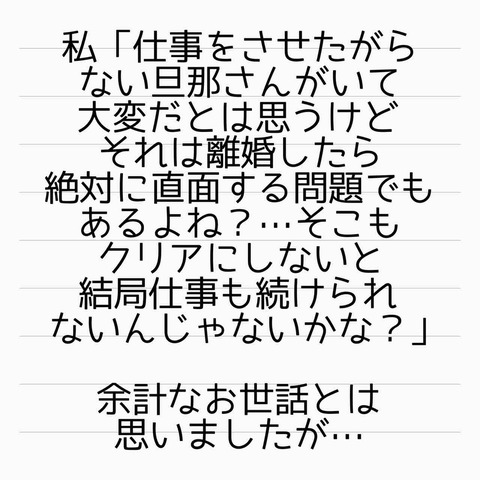 私「仕事をさせたがら
ない旦那さんがいて
大変だとは思うけど
それは離婚したら
絶対に直面する問題でも
あるよね？…そこも
クリアにしないと
結局仕事も続けられ
ないんじゃないかな？」
余計なお世話とは
思いましたが…